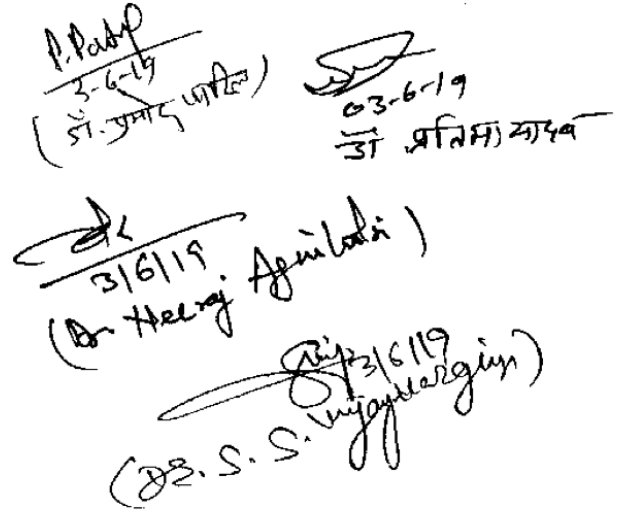 P. Patil
3-6-19
(डॉ. प्रमोद पाटिल)
03-6-19
डॉ प्रतिमा यादव
3/6/19
(Dr Heeraj Agnihotri)
3/6/19
(DR. S. S. Vijayvargiya)